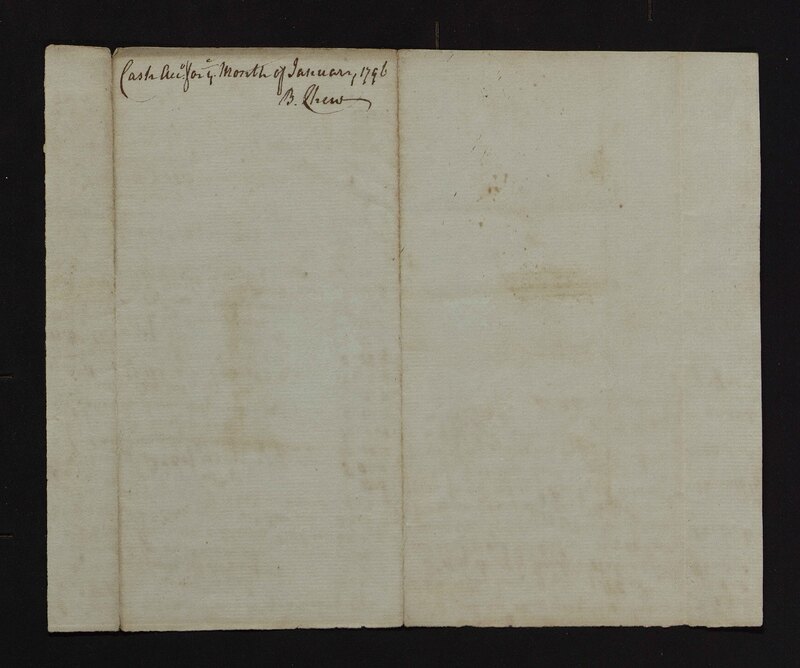 Cash Acct. for ye Month of January 1796
B. Chew